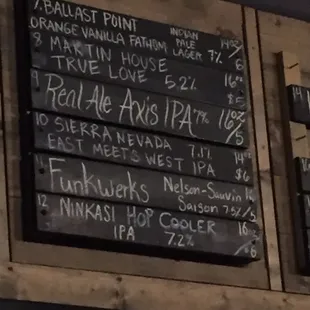 7. BALLAST POINT INDIAN
ORANGE VANILLA FATHOM PALE 14oz
LAGER 7% 6
8 MARTIN HOUSE 16oz
TRUE LOVE 5.2% $5
9 Real Ale Axis IPA 7% 16oz
/5
10 SIERRA NEVADA 7.1% 14oz
EAST MEETS WEST IPA $6
11 Funkwerks Nelson-Sauvin 12
Saison 7.5%
12 NINKASI HOP COOLER 16
IPA 7.2%
14